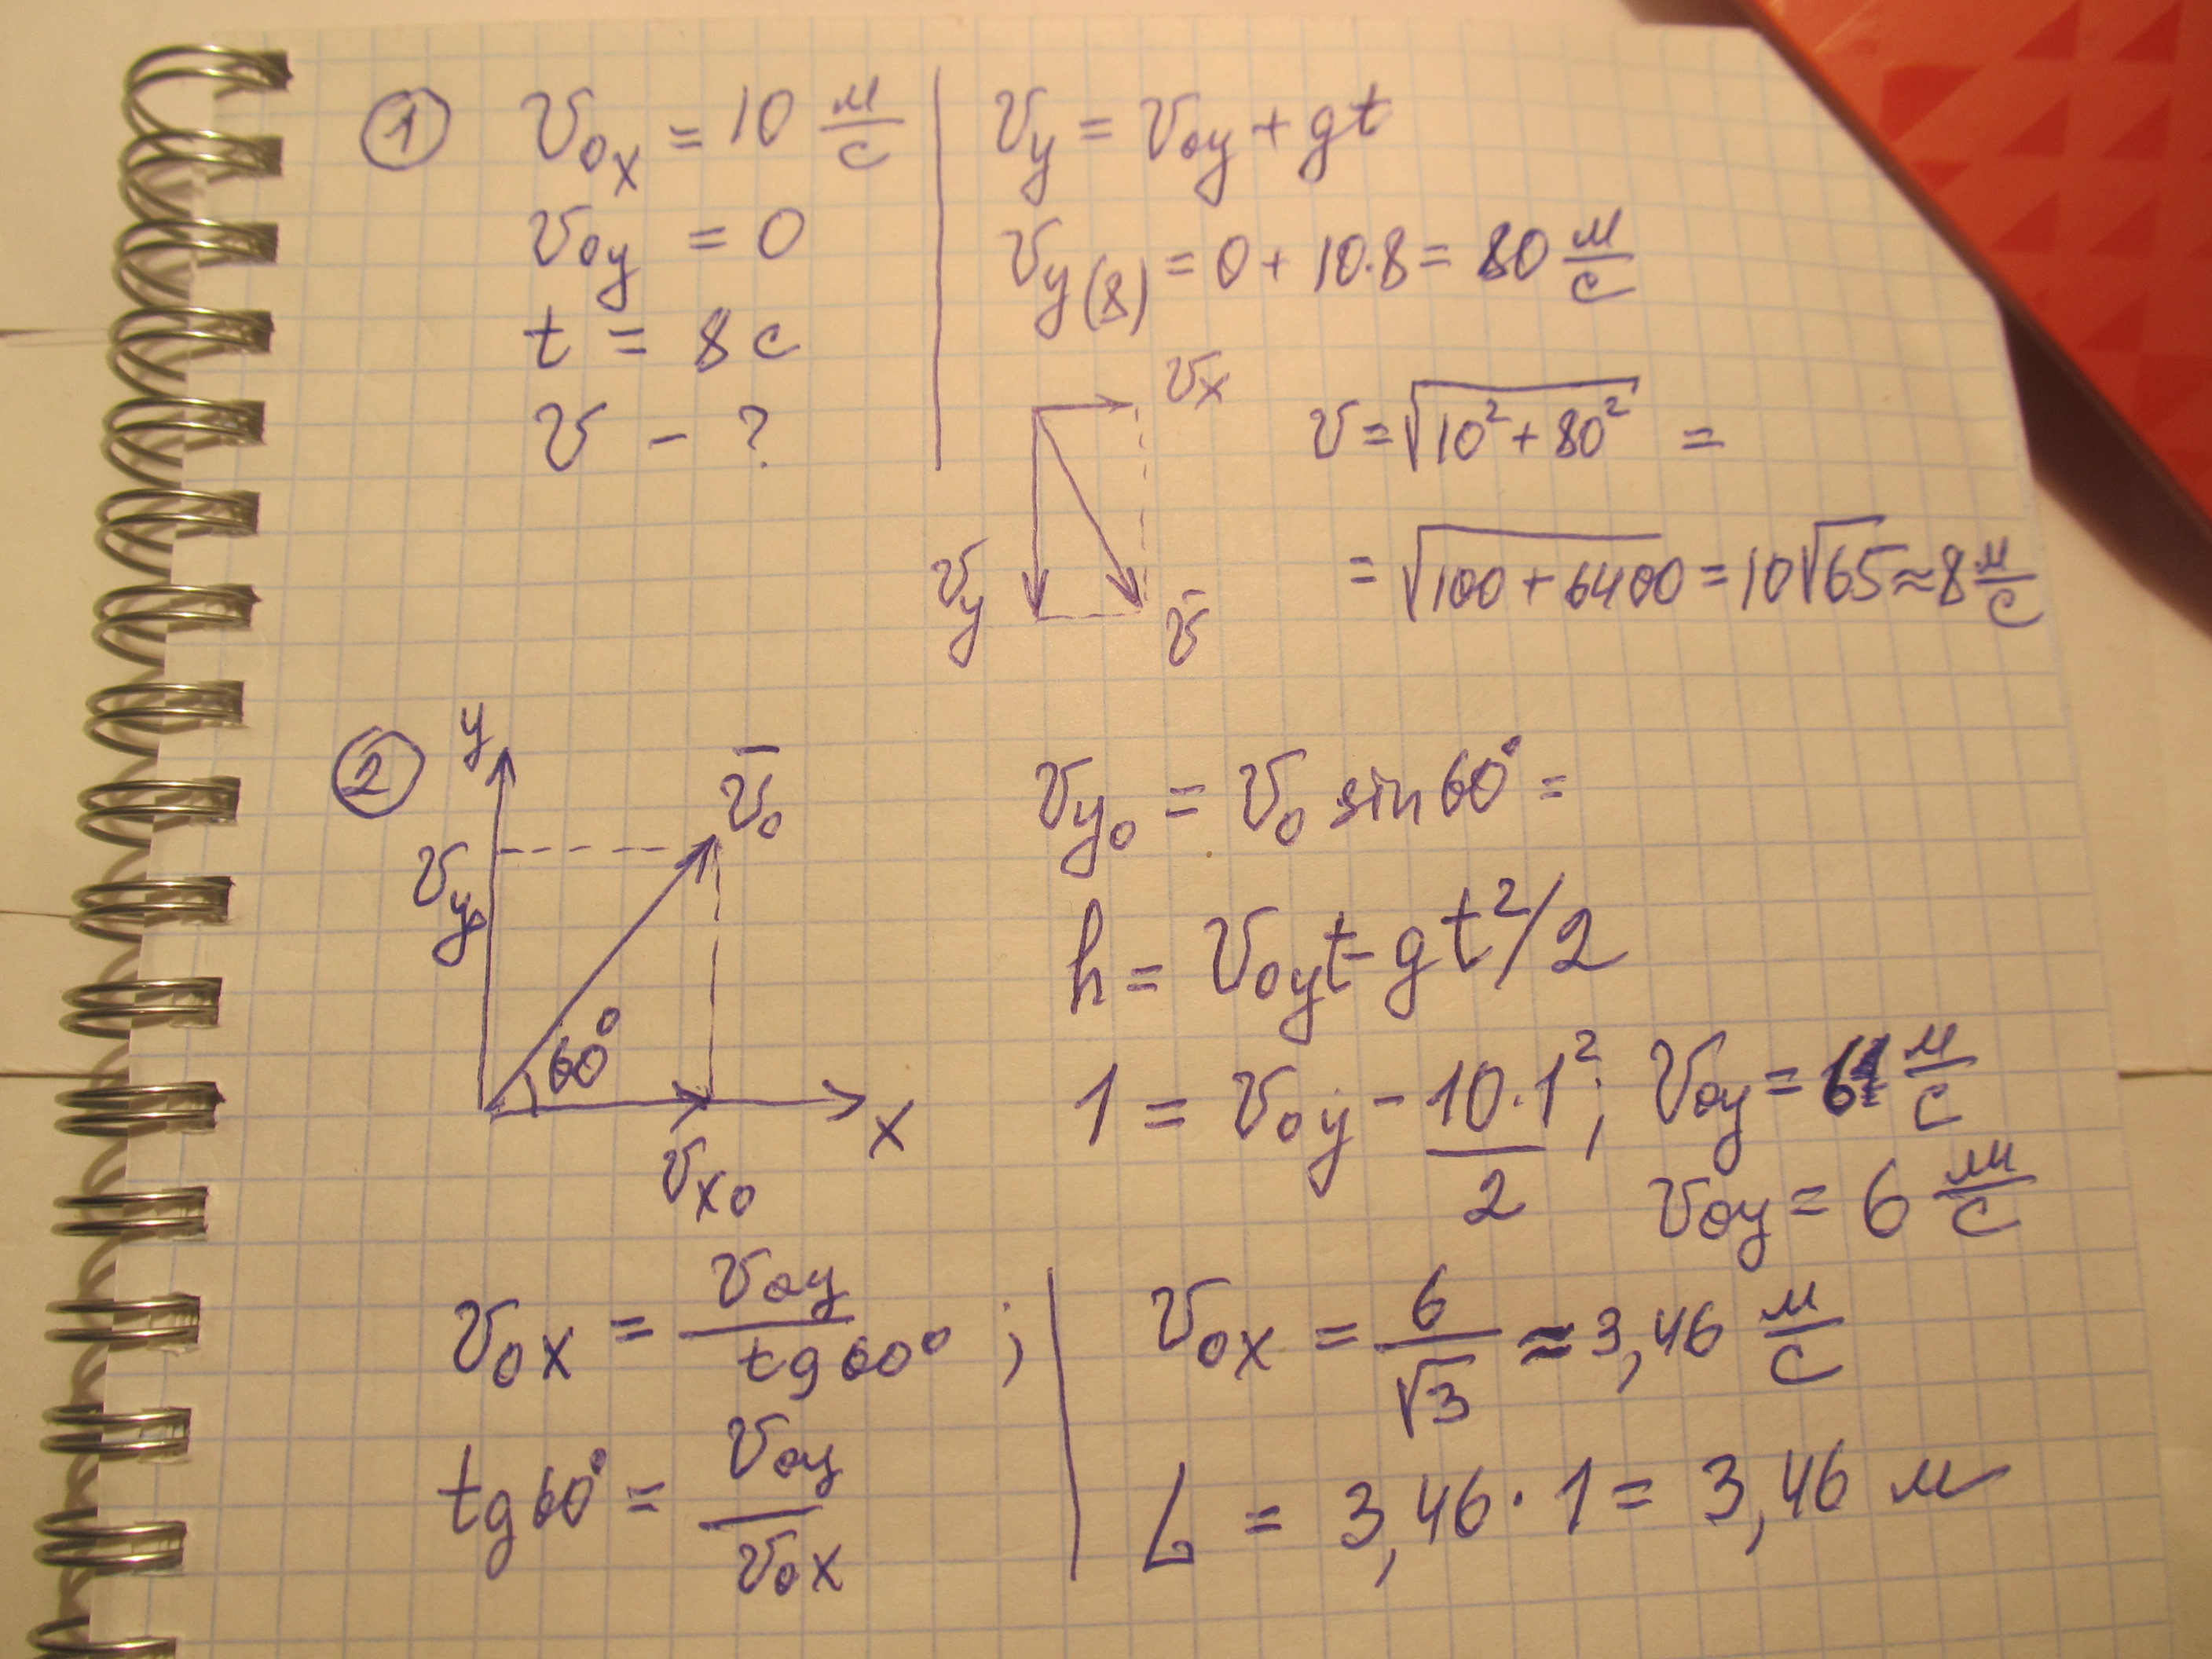 ① v₀ₓ = 10 м/с
v₀y = 0
t = 8 с
v – ?
vy = v₀y + gt
vy(8) = 0 + 10·8 = 80 м/с
vₓ
vy
v̄
v = √(10² + 80²) =
= √(100 + 6400) = 10√65 ≈ 8 м/с
②
y
v̄₀
vy₀
60°
x
vx₀
vy₀ = v₀ sin 60° =
h = v₀yt - gt²/2
1 = v₀y - 10·1²/2 ; v₀y = 6 м/с
v₀y = 6 м/с
v₀ₓ = v₀y / tg 60° ;
tg 60° = v₀y / v₀ₓ
v₀ₓ = 6/√3 ≈ 3,46 м/с
L = 3,46 · 1 = 3,46 м